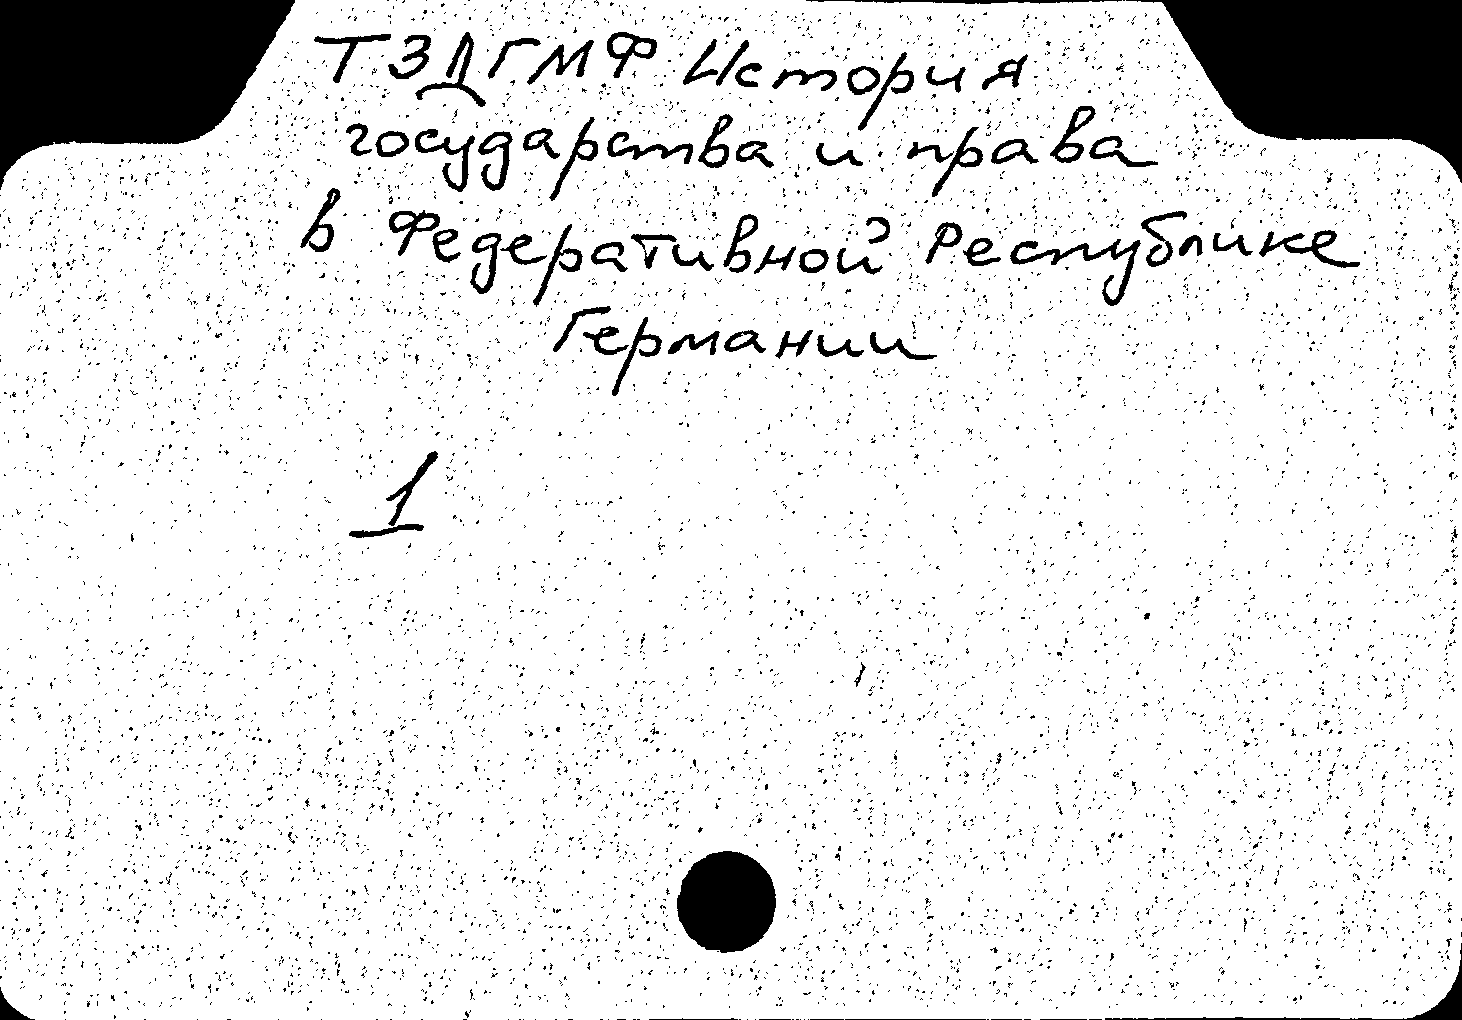 ТЗДГМФ История
государства и права
в Федеративной Республике
Германии
1